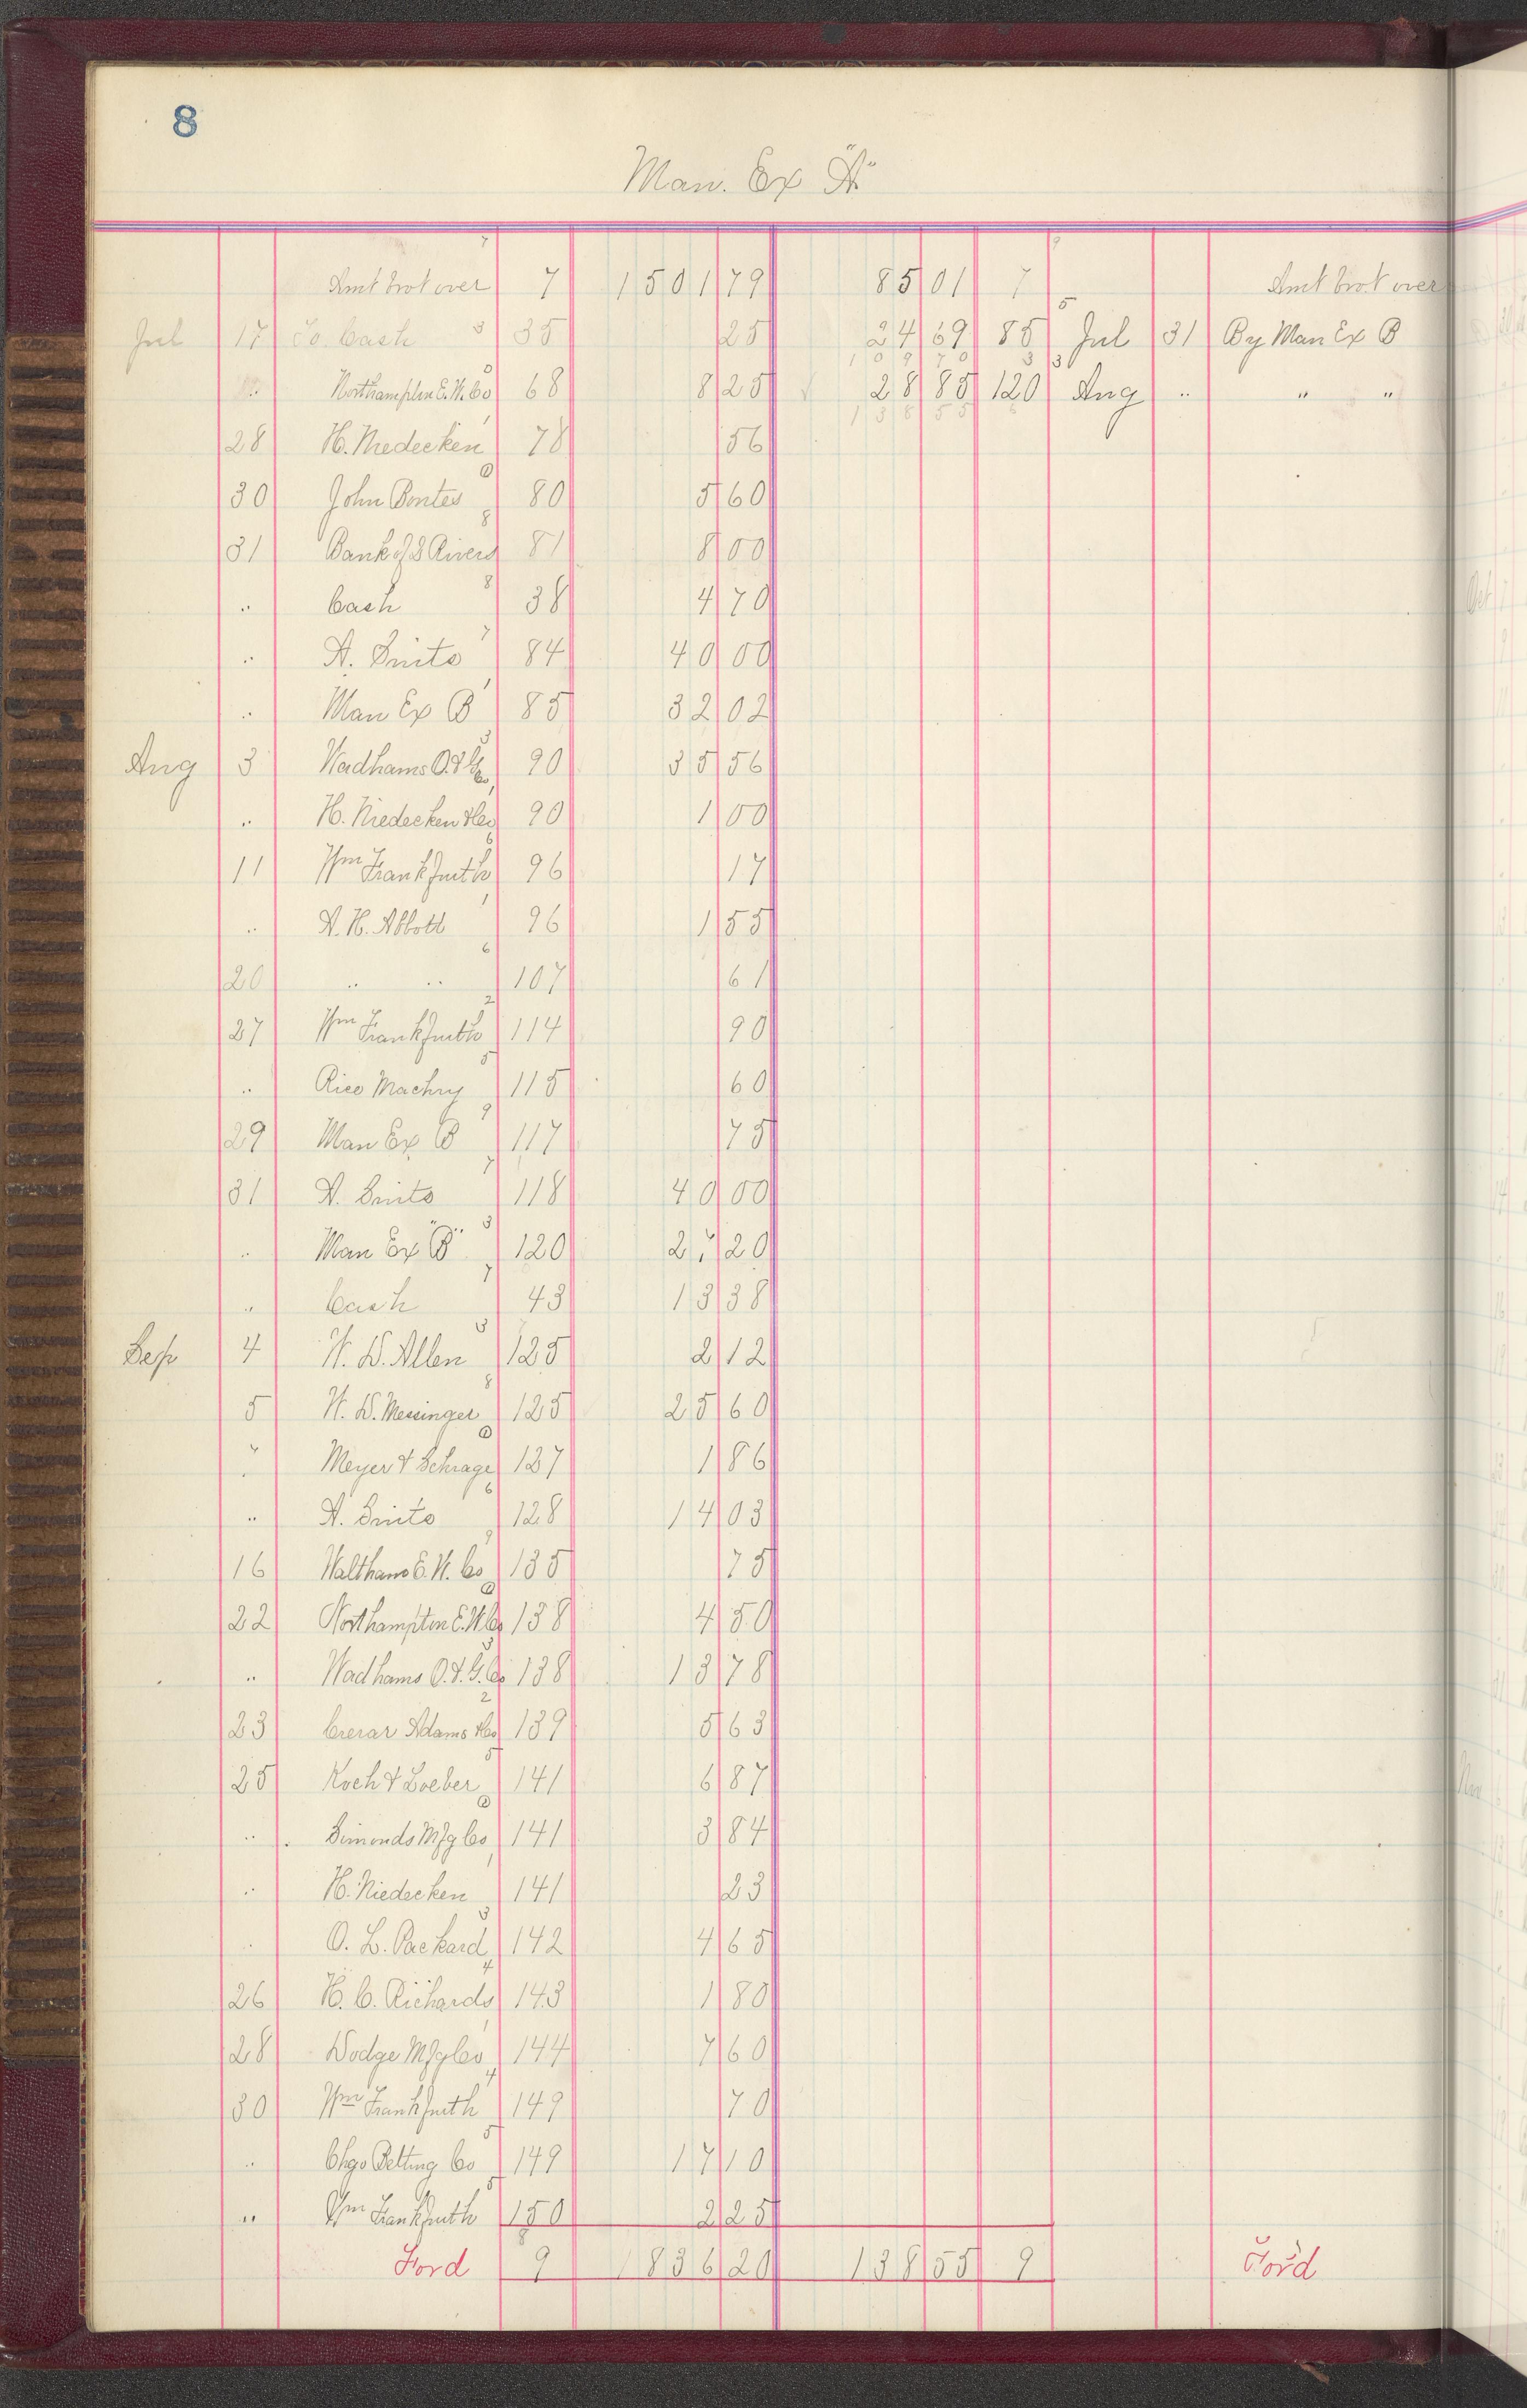 8
Man. Ex "A"
Amt brot over 7 1501 79 85 01 7 Amt brot over
Jul 17 To Cash 35 25 24 69 85 Jul 31 By Man Ex B
109 70
" Northampton E.W. Co 68 8 25 28 85 120 Aug " " "
138 55
28 H. Niedecken 78 56
30 John Pontes 80 5 60
31 Bank of 3 Rivers 81 8 00
" Cash 38 4 70
" A. Smits 84 40 00
" Man Ex B 85 32 02
Aug 3 Wadhams O. & G. Co 90 35 56
" H. Niedecken & Co 90 1 00
11 Wm Frankfurth 96 17
" A. H. Abbott 96 1 55
20 " " 107 61
27 Wm Frankfurth 114 90
" Rice Machry 115 60
29 Man Ex B 117 75
31 A. Smits 118 40 00
" Man Ex "B" 120 27 20
" Cash 43 13 38
Sep 4 W. D. Allen 125 2 12
5 W. D. Messinger 125 25 60
" Meyer & Schrage 127 1 86
" A. Smits 128 14 03
16 Waltham E. W. Co 135 75
22 Northampton E. W. Co 138 4 50
" Wadhams O. & G. Co 138 13 78
23 Crerar Adams & Co 139 5 63
25 Koch & Loeber 141 6 87
" Simonds Mfg Co 141 3 84
" H. Niedecken 141 23
" O. L. Packard 142 4 65
26 H. C. Richards 143 1 80
28 Dodge Mfg Co 144 7 60
30 Wm Frankfurth 149 70
" Chgo Belting Co 149 17 10
" Wm Frankfurth 150 2 25
Ford 9 1836 20 138 55 9 Ford